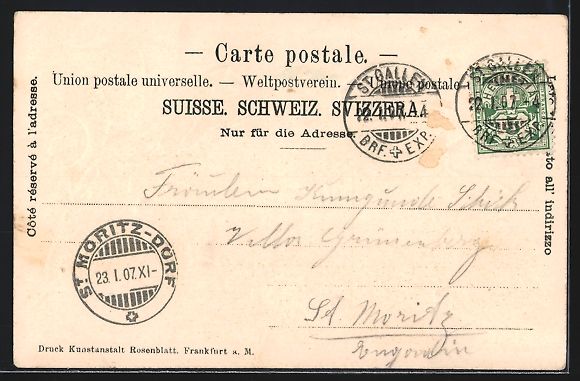 — Carte postale. —
Union postale universelle. — Weltpostverein. — Unione postale
SUISSE. SCHWEIZ. SVIZZERA.
Nur für die Adresse.
Côté réservé à l'adresse.
all' indirizzo
ST. GALLEN
22. I. 07. 4
BRF. EXP.
ST. GALLEN
22. I. 07. 4
BRF. EXP.
Fräulein Kunigunde Schick
Villa Grünenberg
St. Moritz
Engadin
ST. MORITZ-DORF
23. I. 07. XI-
Druck Kunstanstalt Rosenblatt. Frankfurt a. M.